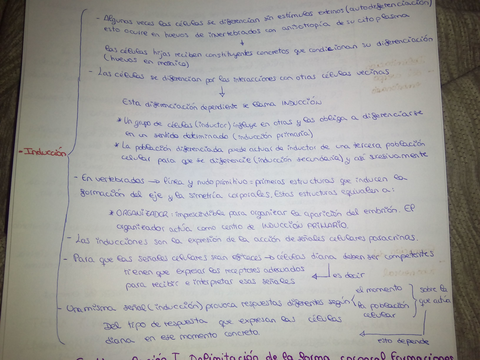 - Algunas veces las células se diferencian sin estímulos externos (autodiferenciación)
esto ocurre en huevos de invertebrados con anisotropia de su citoplasma
las células hijas reciben constituyentes concretos que condicionan su diferenciación
(huevos en mosaico)
- Las células se diferencian por las interacciones con otras células vecinas
Esta diferenciación dependiente se llama INDUCCIÓN
* Un grupo de células (inductor) influye en otras y las obliga a diferenciarse
en un sentido determinado (inducción primaria)
* La población diferenciada puede actuar de inductor de una tercera población
celular para que se diferencie (inducción secundaria) y así sucesivamente
- Inducción
- En vertebrados → línea y nudo primitivo: primeras estructuras que inducen la
formación del eje y la simetría corporales. Estas estructuras equivalen a:
* ORGANIZADOR: imprescindible para organizar la aparición del embrión. El
organizador actúa como centro de INDUCCIÓN PRIMARIA.
- Las inducciones son la expresión de la acción de señales celulares paracrinas.
- Para que las señales celulares sean eficaces → células diana deben ser competentes
tienen que expresar los receptores adecuados
para recibir e interpretar esas señales
es decir
- Una misma señal (inducción) provoca respuestas diferentes según
el momento
la población
celular
sobre la
que actúa
Del tipo de receptores que expresan las células
diana en ese momento concreto.
esto depende
I. Delimitación de la forma corporal